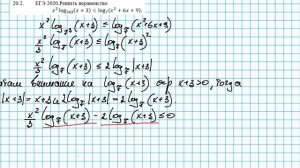 20.2. ЕГЭ 2020.Решить неравенство
x² log₃₄₃(x + 3) ≤ log₇(x² + 6x + 9).
x² log₇³(x+3) ≤ log₇(x²+6x+9)
x²/3 log₇(x+3) ≤ log₇(x+3)²
x²/3 log₇(x+3) ≤ 2 log₇|x+3|
внимание на log₇(x+3) x+3>0, тогда
|x+3| = x+3 и 2log₇|x+3| = 2log₇(x+3).
x²/3 log₇(x+3) - 2log₇(x+3) ≤ 0